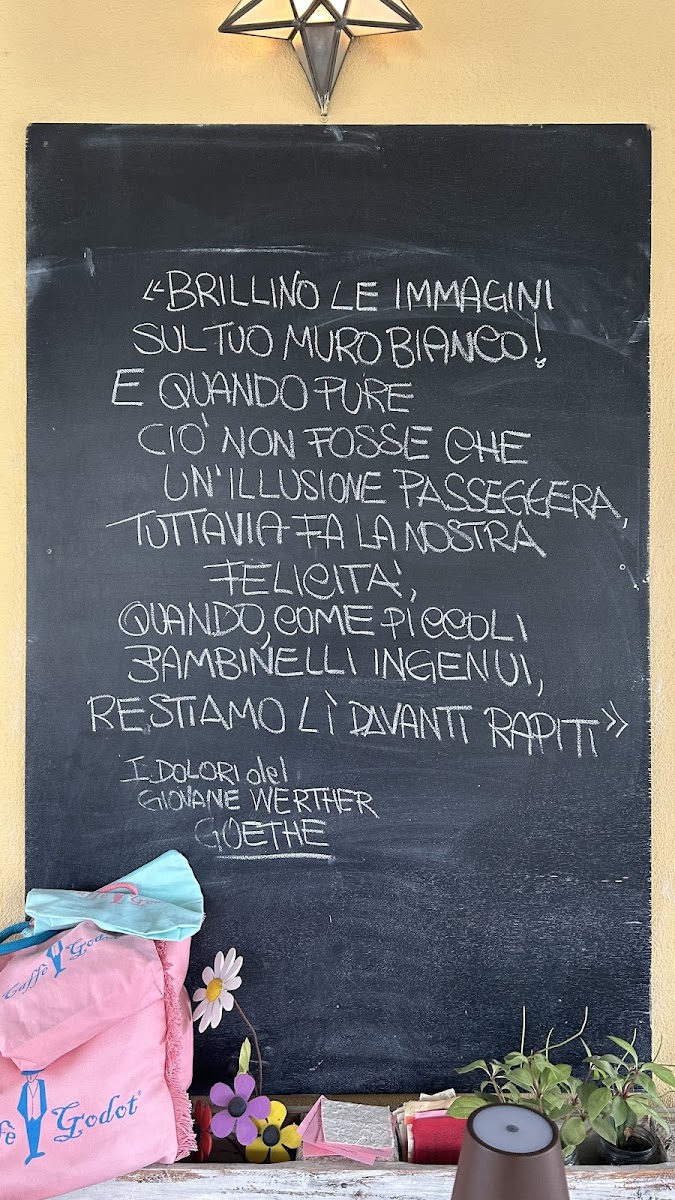 «BRILLINO LE IMMAGINI
SUL TUO MURO BIANCO!
E QUANDO PURE
CIO' NON FOSSE CHE
UN'ILLUSIONE PASSEGGERA,
TUTTAVIA FA LA NOSTRA
FELICITA',
QUANDO, COME PICCOLI
BAMBINELLI INGENUI,
RESTIAMO LÌ DAVANTI RAPITI»
I DOLORI del
GIOVANE WERTHER
GOETHE
Caffè Godot
Godot